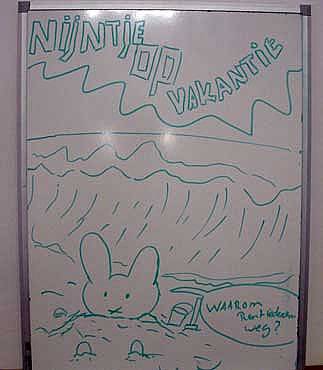 NIJNTJE
OP
VAKANTIE
WAAROM
Rent iedereen
weg?